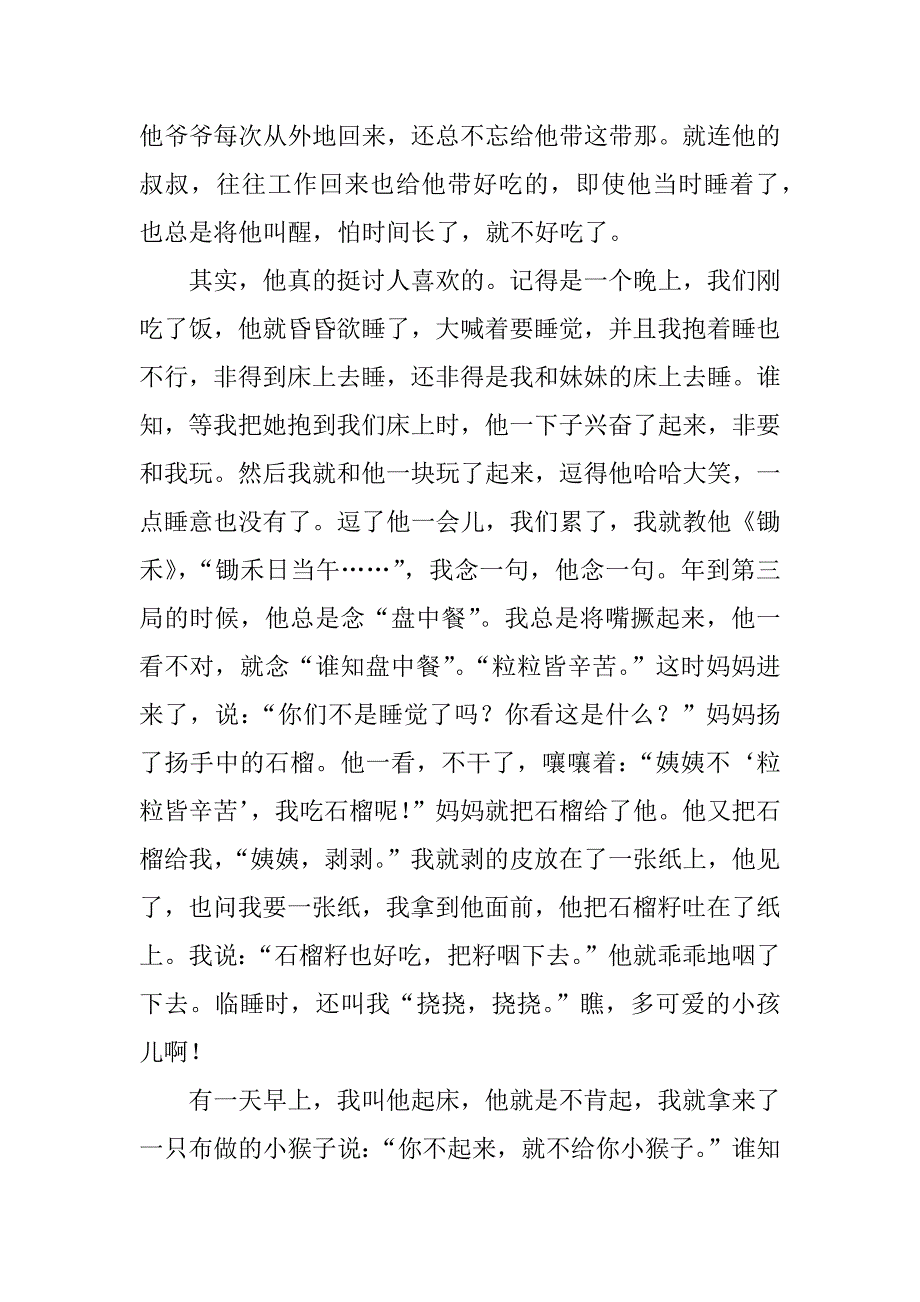 他爷爷每次从外地回来，还总不忘给他带这带那。就连他的
叔叔，往往工作回来也给他带好吃的，即使他当时睡着了，
也总是将他叫醒，怕时间长了，就不好吃了。
其实，他真的挺讨人喜欢的。记得是一个晚上，我们刚
吃了饭，他就昏昏欲睡了，大喊着要睡觉，并且我抱着睡也
不行，非得到床上去睡，还非得是我和妹妹的床上去睡。谁
知，等我把她抱到我们床上时，他一下子兴奋了起来，非要
和我玩。然后我就和他一块玩了起来，逗得他哈哈大笑，一
点睡意也没有了。逗了他一会儿，我们累了，我就教他《锄
禾》，“锄禾日当午……”，我念一句，他念一句。年到第三
局的时候，他总是念“盘中餐”。我总是将嘴撅起来，他一
看不对，就念“谁知盘中餐”。“粒粒皆辛苦。”这时妈妈进
来了，说：“你们不是睡觉了吗？你看这是什么？”妈妈扬
了扬手中的石榴。他一看，不干了，嚷嚷着：“姨姨不‘粒
粒皆辛苦’，我吃石榴呢！”妈妈就把石榴给了他。他又把石
榴给我，“姨姨，剥剥。”我就剥的皮放在了一张纸上，他见
了，也问我要一张纸，我拿到他面前，他把石榴籽吐在了纸
上。我说：“石榴籽也好吃，把籽咽下去。”他就乖乖地咽了
下去。临睡时，还叫我“挠挠，挠挠。”瞧，多可爱的小孩
儿啊！
有一天早上，我叫他起床，他就是不肯起，我就拿来了
一只布做的小猴子说：“你不起来，就不给你小猴子。”谁知